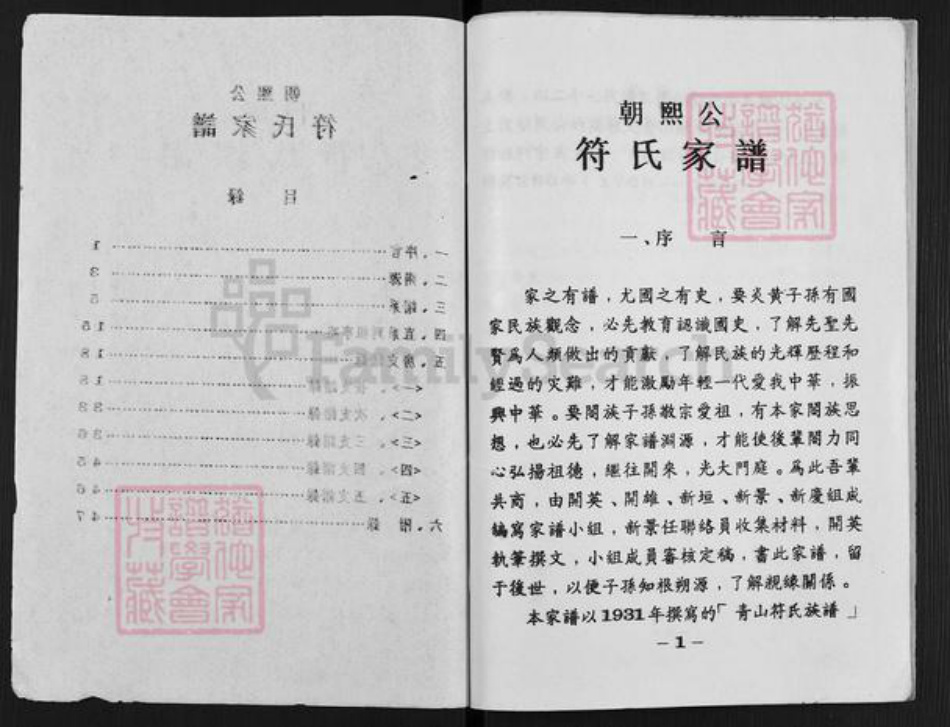 朝熙公
符氏家譜
目錄
一.序言 1
二.淵源 3
三.譜系 5
四. 15
五. 18
<一>. 18
<二>.次支譜錄 22
<三>.三支譜錄 36
<四>.四支譜錄 45
<五>.五支譜錄 46
六.附錄 47
朝熙公
符氏家譜
一、序言
家之有譜，尤國之有史，要炎黃子孫有國
家民族觀念，必先教育認識國史，了解先聖先
賢爲人類做出的貢獻，了解民族的光輝歷程和
經過的灾難，才能激勵年輕一代愛我中華，振
興中華。要閤族子孫敬宗愛祖，有本家閤族思
想，也必先了解家譜淵源，才能使後輩閤力同
心弘揚祖德，繼往開來，光大門庭。爲此吾輩
共商，由開英、開雄、新垣、新景、新慶組成
編寫家譜小組，新景任聯絡員收集材料，開英
執筆撰文，小組成員審核定稿，書此家譜，留
于後世，以便子孫知根朔源，了解親緣關係。
本家譜以1931年撰寫的「青山符氏族譜」
-1-
FamilySearch